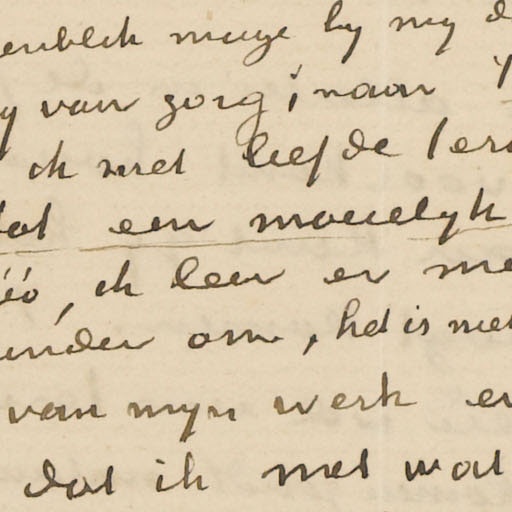 enblik moege by my d
y van zorg; naar
ik met liefde ter
dat een moeielijk
éé, ik leer er me
inder om, het is niet
van mijn werk er
dat ik met wat